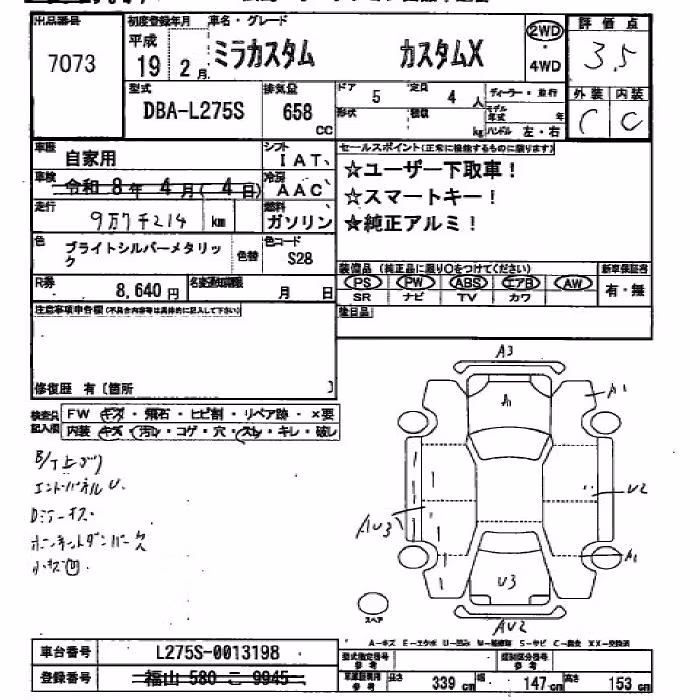 出品番号 初度登録年月 車名・グレード 2WD 評価点
7073 平成 19 2月 ミラカスタム カスタムX 4WD 3.5
型式 排気量 ドア 5 定員 4 人 ディーラー・並行 外装 内装
DBA-L275S 658 cc 形状 積載 kg モデル年式 年 ハンドル 左・右 C C
車歴 自家用 シフト IAT セールスポイント(正常に機能するものに限ります)
車検 令和 8年 4月(4日) 冷房 AAC ☆ユーザー下取車!
☆スマートキー!
走行 9万7千214 km 燃料 ガソリン ★純正アルミ!
色 ブライトシルバーメタリック 色替 色コード S28
装備品(純正品に限り○をつけてください) 新車保証書
R券 8,640円 名変通知期限 月 日 PS PW ABS エアB AW 有・無
SR ナビ TV カワ
注意事項申告欄(不具合内容等は具体的に記入して下さい) 後日品
修復歴 有〔箇所 〕
検査員記入欄 FW キズ・飛石・ヒビ割・リペア跡・×要
内装 キズ・汚レ・コゲ・穴・スレ・キレ・破レ
A3
A1
A1
B/T上ゴリ
エンドパネルU
U2
AU3
A1
小キズ凹
U3
スペア
AU2
A-キズ E-エクボ U-凹み
車台番号 L275S-0013198 型式指定番号 参考 類別区分番号 参考
登録番号 福山 580 こ 9945 長さ 339 cm 幅 147 cm 高さ 153 cm